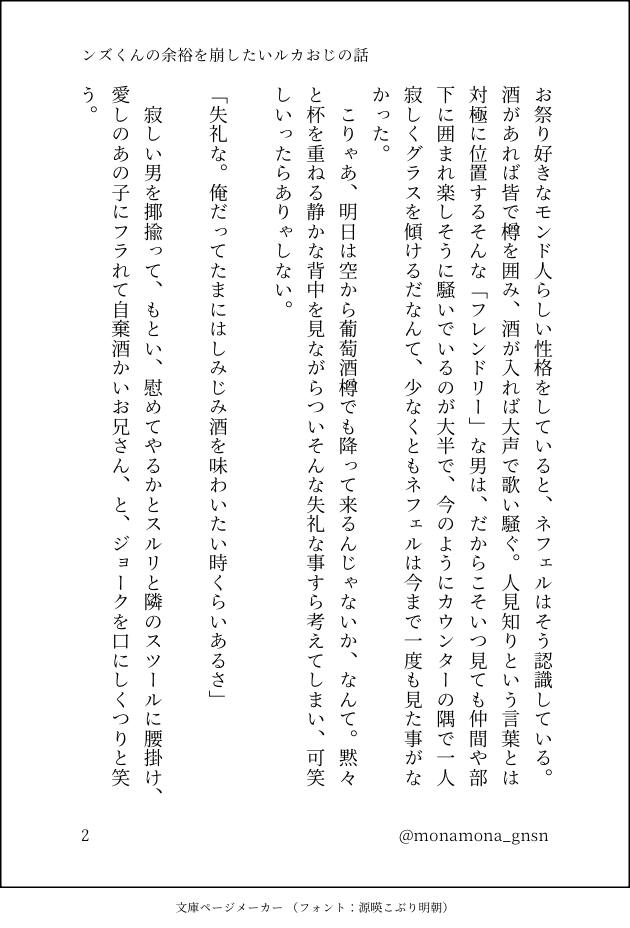 ンズくんの余裕を崩したいルカおじの話
お祭り好きなモンド人らしい性格をしていると、ネフェルはそう認識している。
酒があれば皆で樽を囲み、酒が入れば大声で歌い騒ぐ。人見知りという言葉とは
対極に位置するそんな「フレンドリー」な男は、だからこそいつ見ても仲間や部
下に囲まれ楽しそうに騒いでいるのが大半で、今のようにカウンターの隅で一人
寂しくグラスを傾けるだなんて、少なくともネフェルは今まで一度も見た事がな
かった。
こりゃあ、明日は空から葡萄酒樽でも降って来るんじゃないか、なんて。黙々
と杯を重ねる静かな背中を見ながらついそんな失礼な事すら考えてしまい、可笑
しいったらありゃしない。
「失礼な。俺だってたまにはしみじみ酒を味わいたい時くらいあるさ」
寂しい男を揶揄って、もとい、慰めてやるかとスルリと隣のスツールに腰掛け、
愛しのあの子にフラれて自棄酒かいお兄さん、と、ジョークを口にしくつりと笑
う。
2
@monamona_gnsn
文庫ページメーカー（フォント：源暎こぶり明朝）